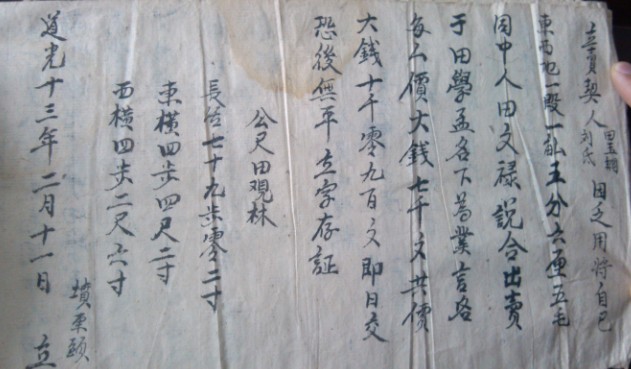 立賣契人田玉朝劉氏因乏用將自己
東西地一段一畝五分六厘五毛
同中人田文祿説合出賣
于田學孟名下為業言咯
每畝價大錢七千文共價
大錢十千零九百文即日交
恐後無平立字存証
公尺田現林
長？七十九步零二寸
東橫四步四尺二寸
西橫四步二尺六寸
道光十三年二月十一日 立